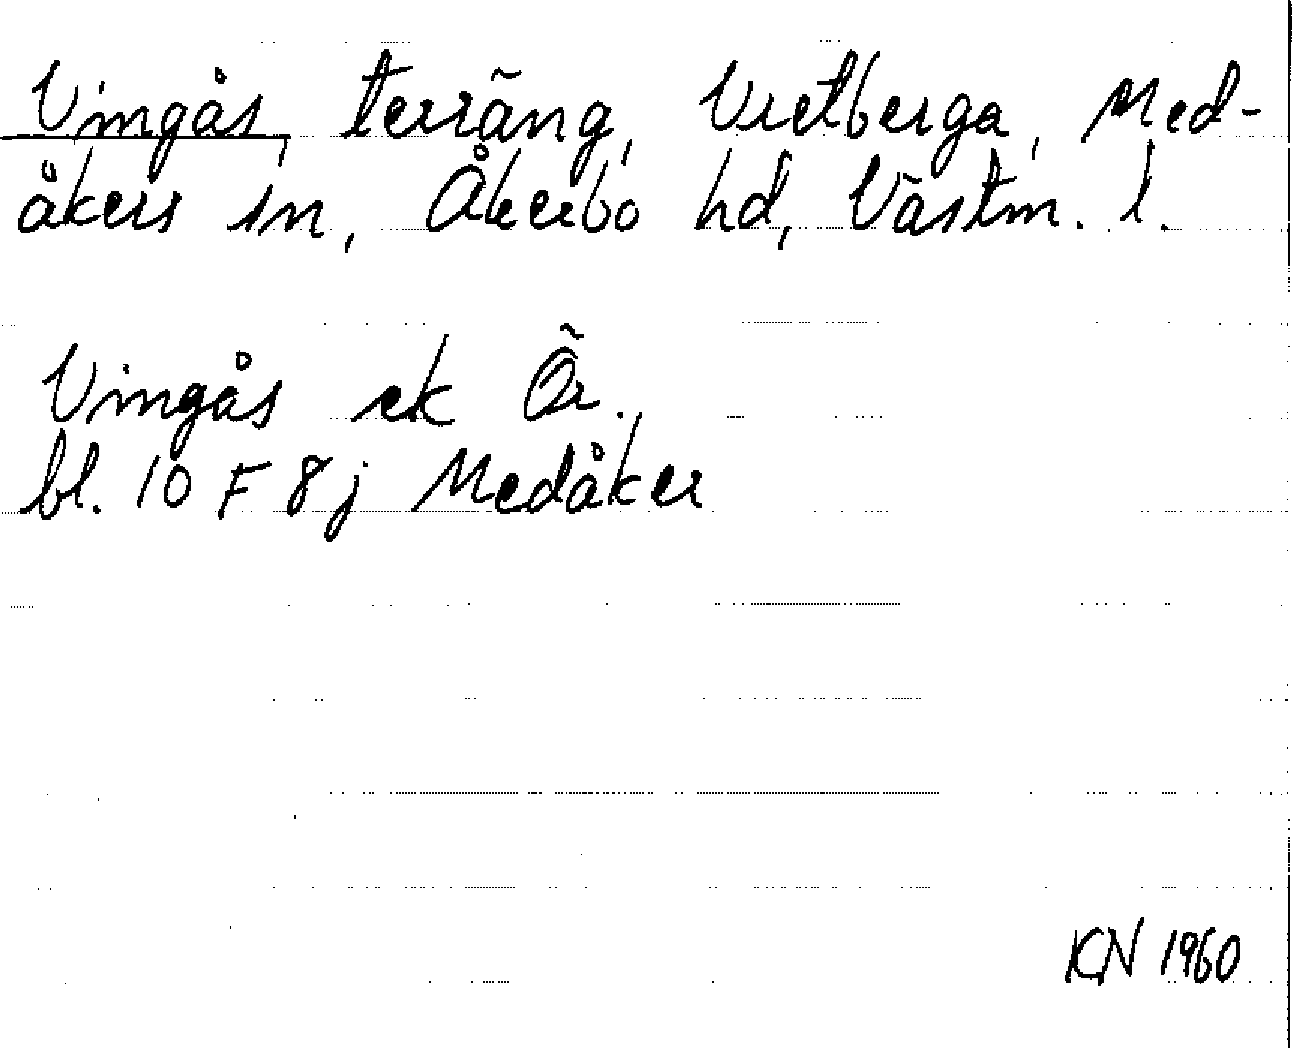 Vingås, terräng, Vretberga, Med-
åkers sn, Åkerbo hd, Västm. l.
Vingås ek Ör.
bl. 10 F 8j Medåker
KN 1960